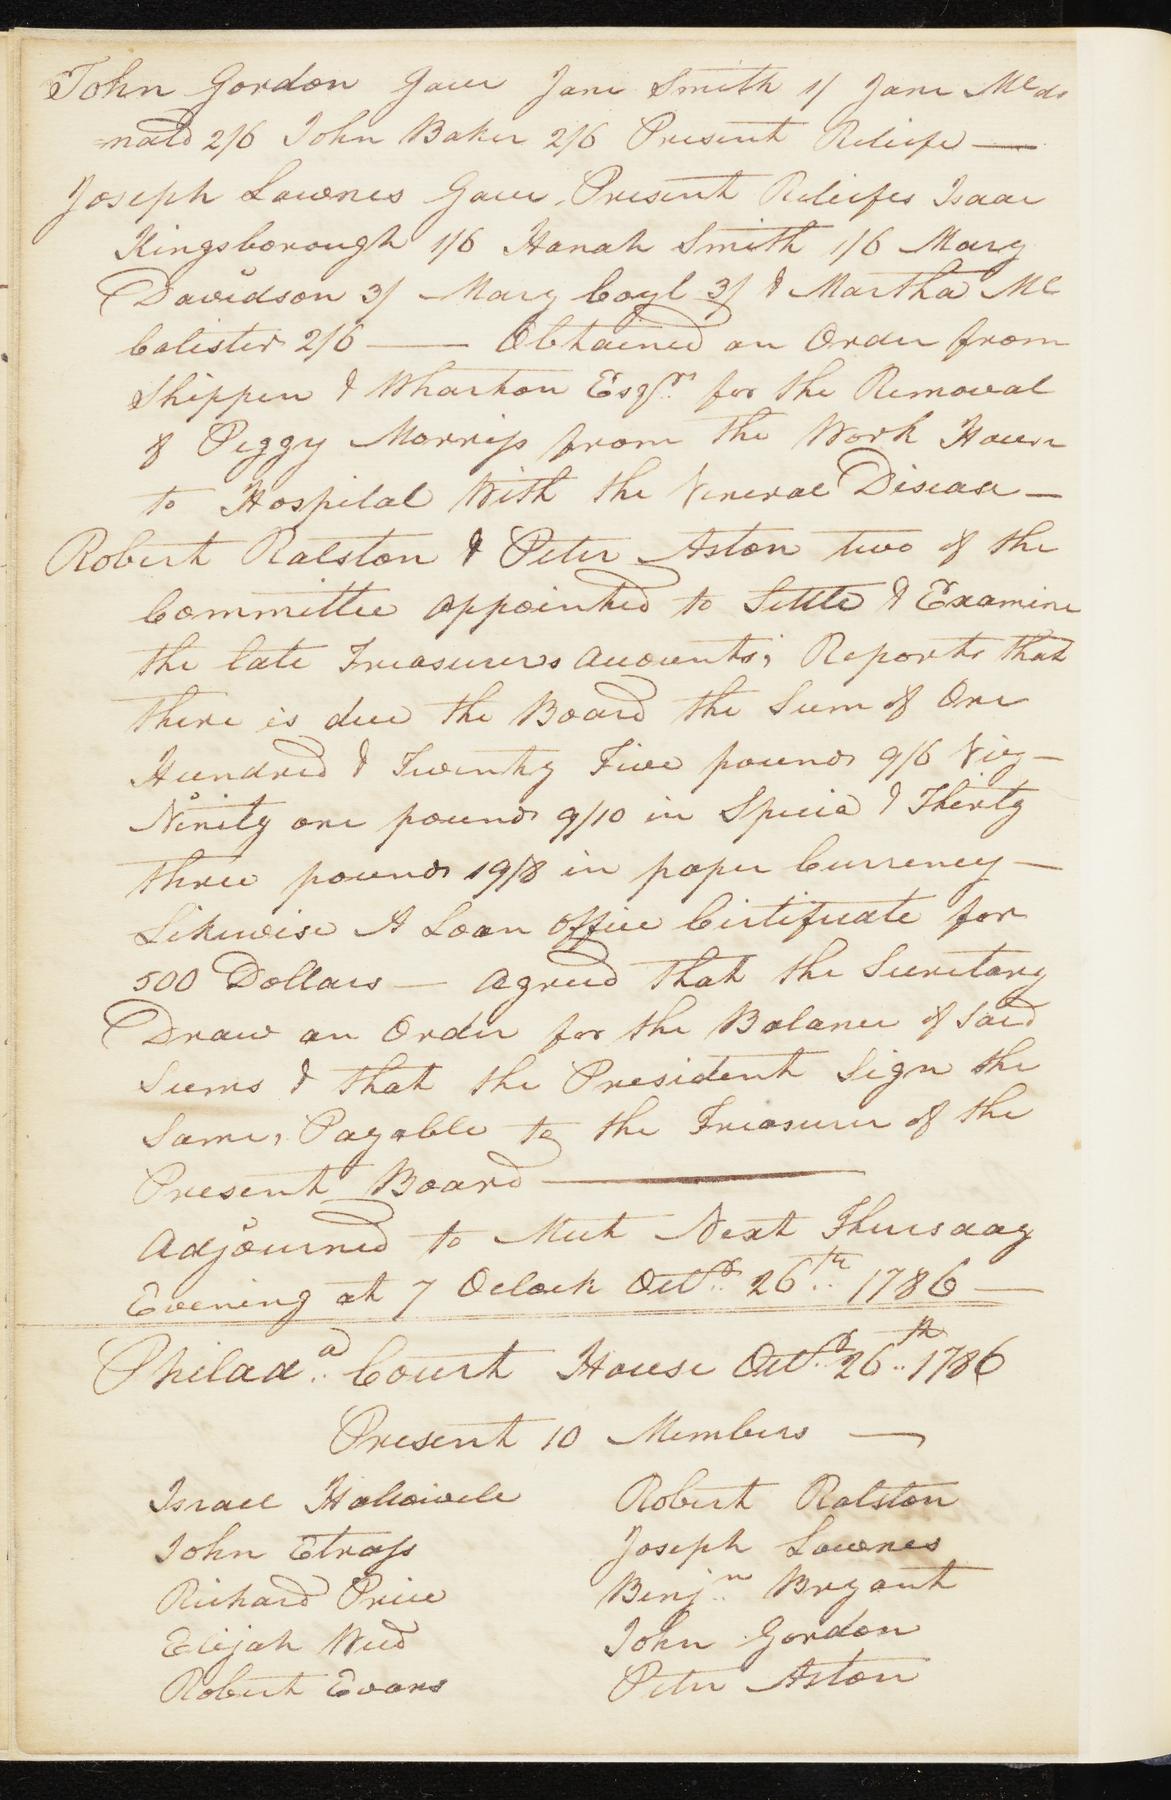 John Gordon Gave Jane Smith 1/ Jane Mcdo
=nald 2/6 John Baker 2/6 Present Reliefe —
Joseph Lownes Gave Present Reliefes Isaac
Kingsborough 1/6 Hanah Smith 1/6 Mary
Davidson 3/ Mary Coyl 3/ & Martha Mc
Calister 2/6 — Obtained an Order from
Shippen & Wharton Esqrs for the Removal
of Peggy Morriss from the Work House
to Hospital With the Veneral Disease —
Robert Ralston & Peter Aston two of the
Committee appointed to Settle & Examine
the late Treasurers accounts; Reports that
there is due the Board the Sum of One
Hundred & Twenty Five pounds 9/6 Viz —
Ninity one pounds 9/10 in Specia & Thirty
three pounds 19/8 in paper Currency —
Likewise A Loan Office Certificate for
500 Dollars — agreed that the Secretary
Draw an Order for the Balance of Said
Sums & that the President Sign the
Same, Payable to the Treasurer of the
Present Board —
Adjourned to Meet Next Thursday
Evening at 7 Oclock Octr 26th 1786 —
Philada Court House Octr 26th 1786
Present 10 Members —
Israel Hallowell Robert Ralston
John Strass Joseph Lownes
Richard Price Benjn Bryant
Elijah Weed John Gordon
Robert Evans Peter Aston